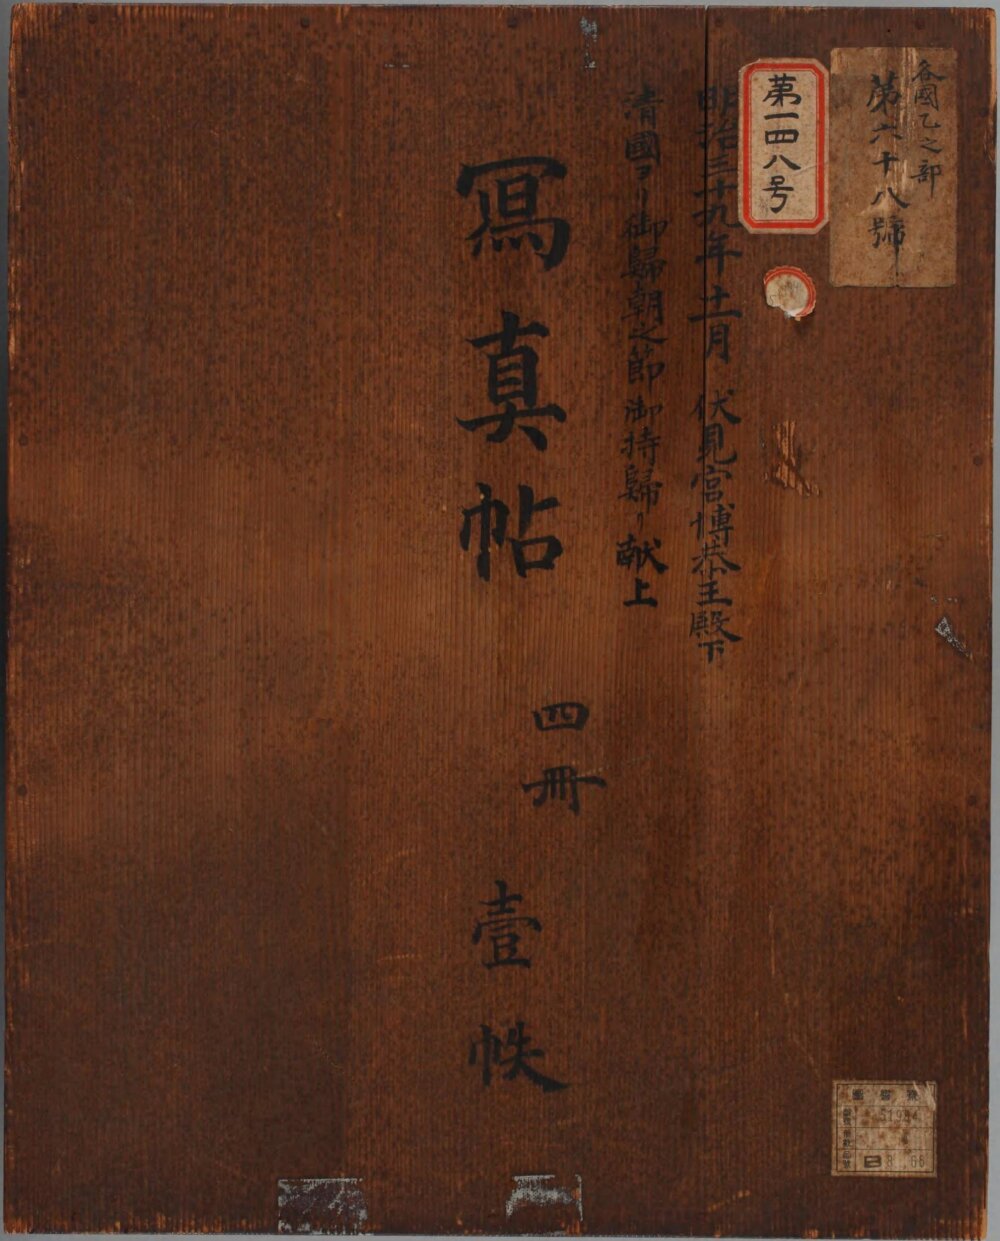 各國乙之部
第六十八號
第一四八号
明治三十九年十一月 伏見宮博恭王殿下
清國ヨリ御歸朝之節御持歸リ献上
寫真帖
四冊
壹帙
51984
4
B8 66